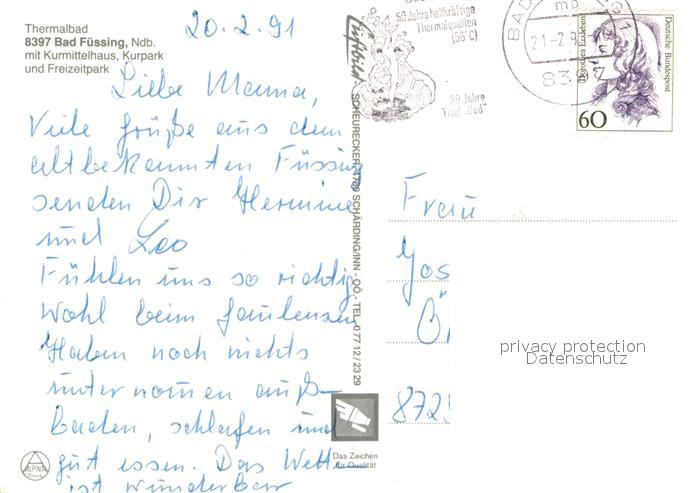 Thermalbad
8397 Bad Füssing, Ndb.
mit Kurmittelhaus, Kurpark
und Freizeitpark
20.2.91
Liebe Mamma,
Viele Grüße aus dem
altbekannten Füssing
senden Dir Hermine
und Leo
Fühlen uns so richtig
Wohl beim faulenzen
Haben noch nichts
unternommen auß-
baden, schlafen und
gut essen. Das Wetter
ist wunderbar
ALPINA
Druck
Luftbild
SCHEURECKER, 4780 SCHÄRDING/INN - OÖ, - TEL. 0 77 12 / 23 29
Das Zeichen
für Qualität
50 Jahre heilkräftige
Thermalquellen
(56°C)
20 Jahre
Titel "Bad"
BAD
mp
21-2
83 7
Frauen der deutschen
Deutsche Bundespost
60
Frau
Jos
Ö
872
privacy protection
Datenschutz